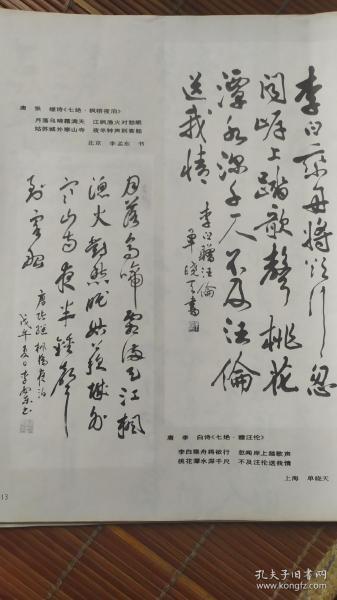 李白乘舟将欲行忽
闻岸上踏歌声桃花
潭水深千尺不及汪伦
送我情
李白赠汪伦
单晓天书
唐 李 白诗《七绝·赠汪伦》
李白乘舟将欲行 忽闻岸上踏歌声
桃花潭水深千尺 不及汪伦送我情
上海 单晓天
唐 张 继诗《七绝·枫桥夜泊》
月落乌啼霜满天 江枫渔火对愁眠
姑苏城外寒山寺 夜半钟声到客船
北京 李孟东 书
月落乌啼霜满天江枫
渔火对愁眠姑苏城外
寒山寺夜半钟声
到客船
唐张继枫桥夜泊
13
孔夫子旧书网